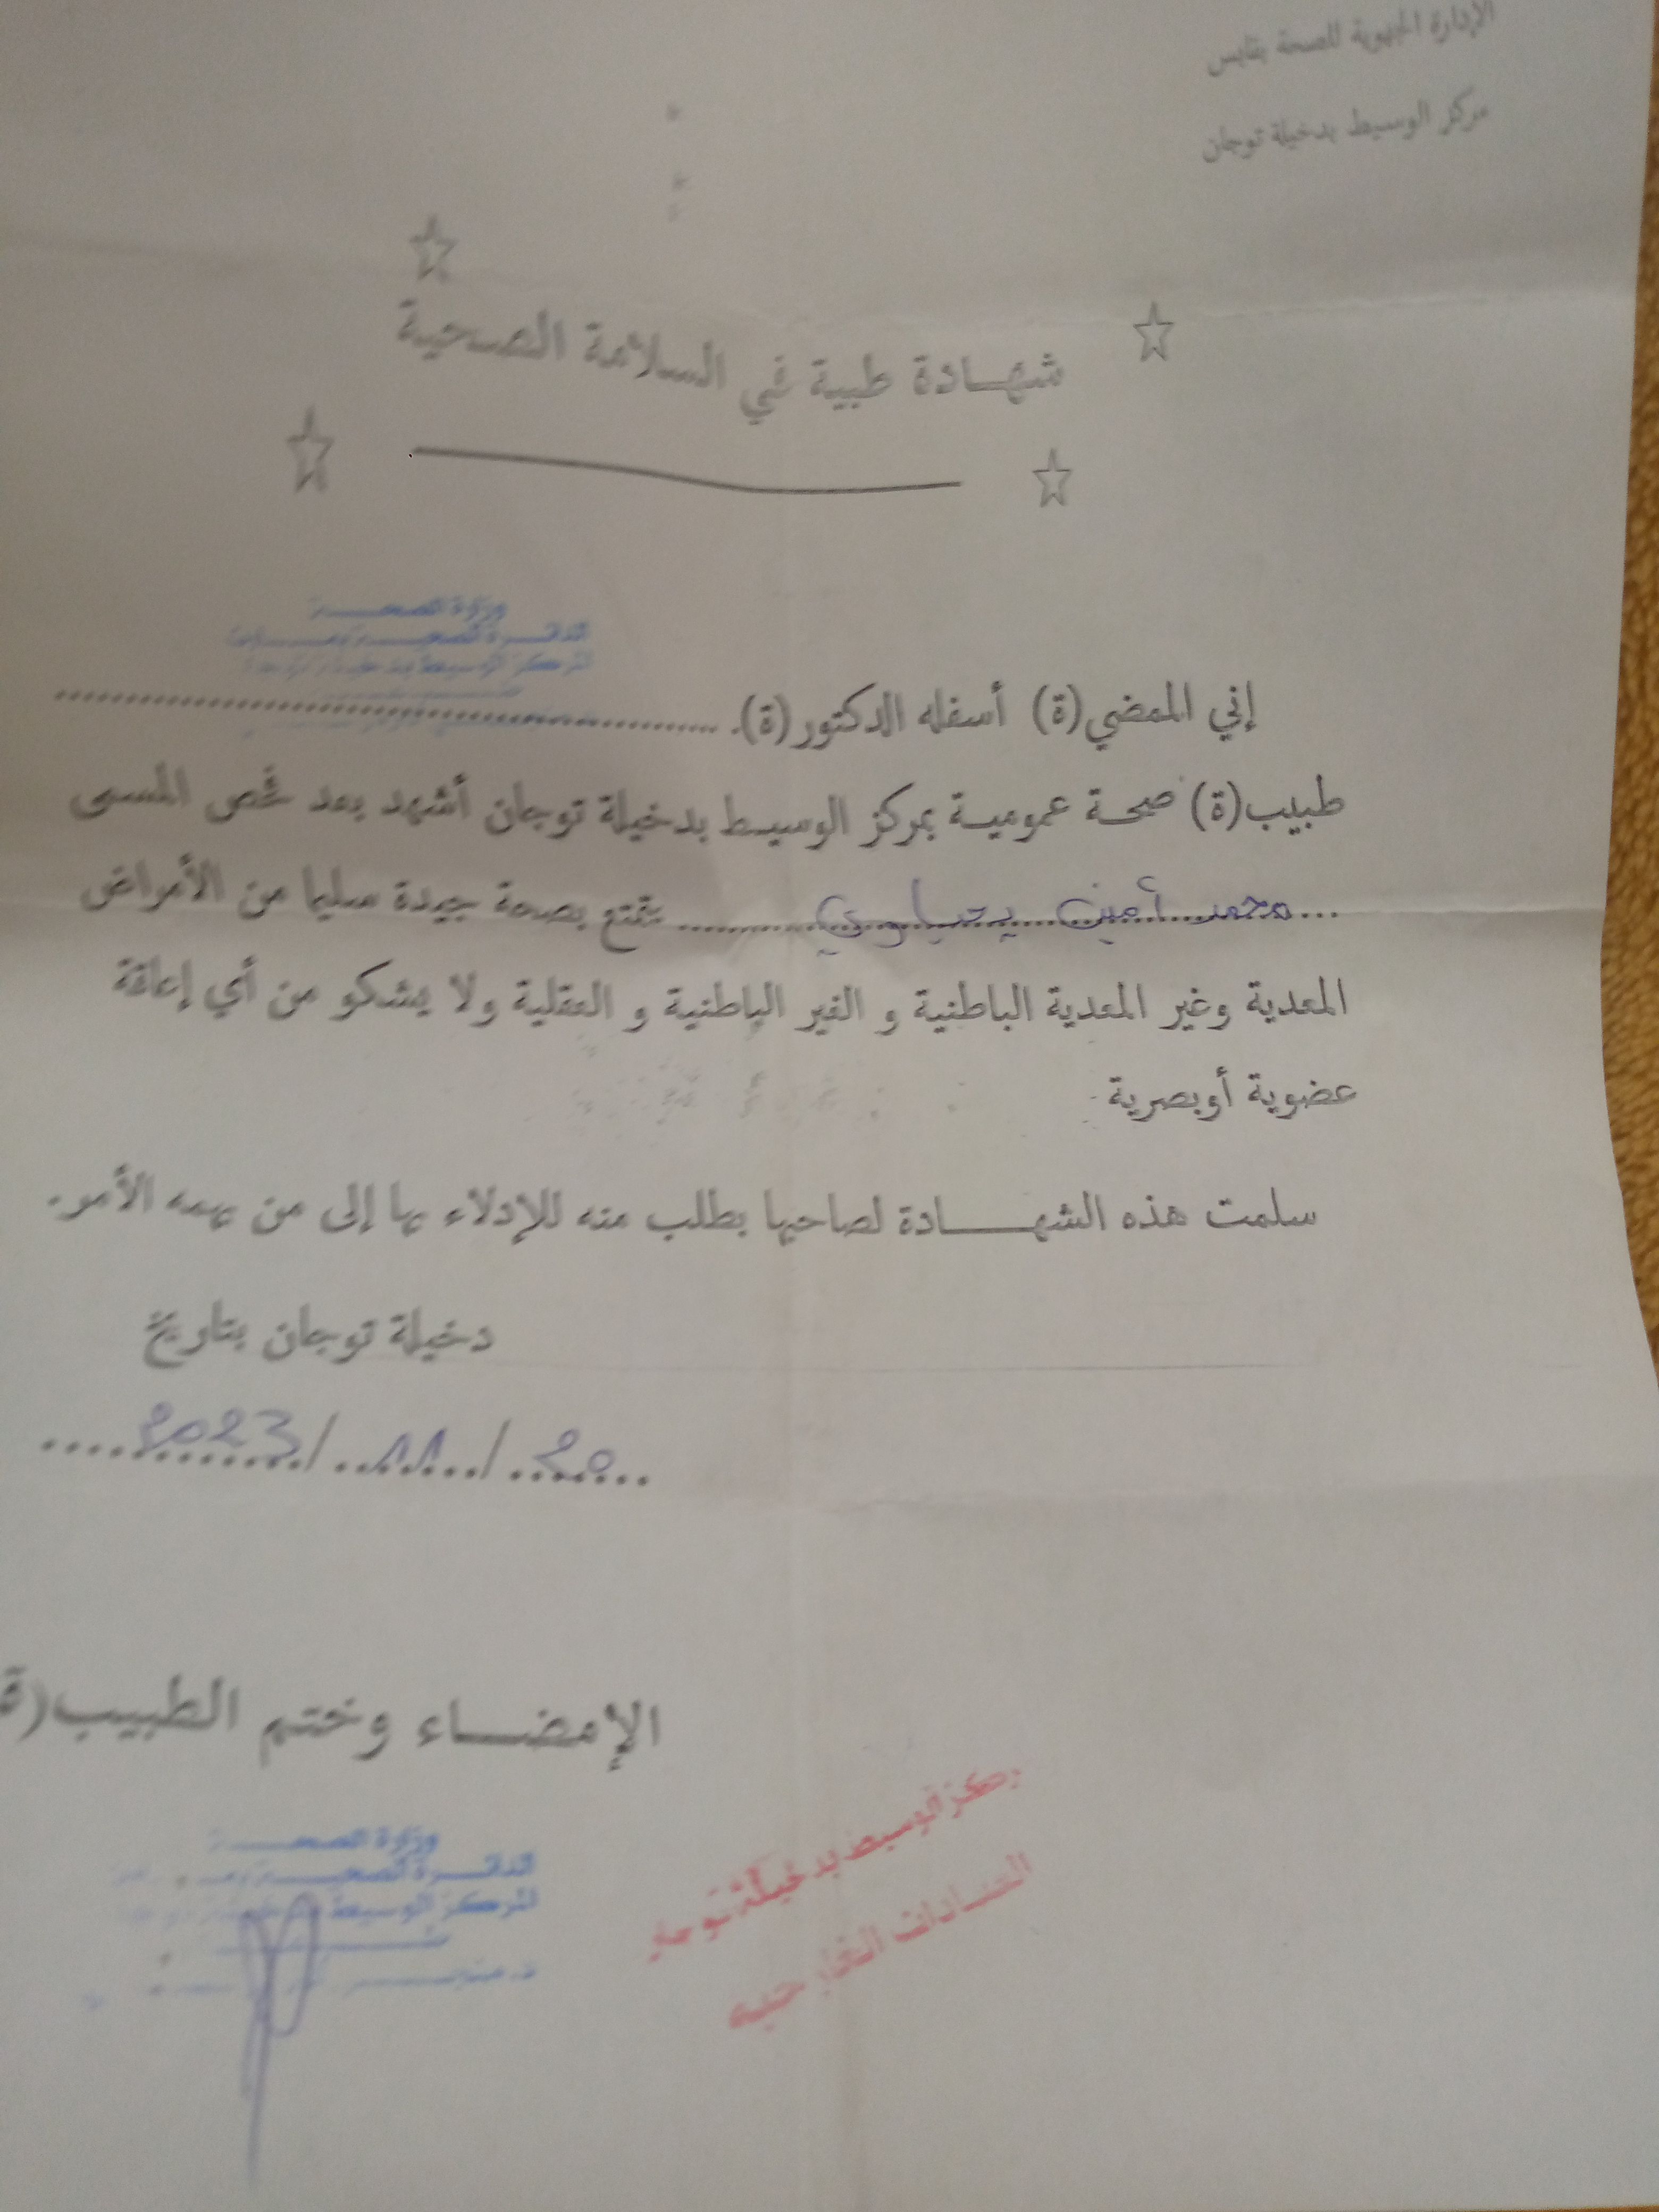 الإدارة الجهوية للصحة بقابس
مركز الوسيط بدخيلة توجان
شهـــادة طبية في السلامة الصحية
وزارة الصحـــة
الدائـــرة الصحيـــة
المركز الوسيط
إني الممضي(ة) أسفله الدكتور(ة).
طبيب(ة) صحة عمومية بمركز الوسيط بدخيلة توجان أشهد بعد فحص المسمى
محمد أمين يحياوي يتمتع بصحة جيدة سليما من الأمراض
المعدية وغير المعدية الباطنية و الغير الباطنية و العقلية ولا يشكو من أي إعاقة
عضوية أوبصرية
سلمت هذه الشهـــــادة لصاحبها بطلب منه للإدلاء بها إلى من يهمه الأمر.
دخيلة توجان بتاريخ
20 / 11 / 2023
الإمضـــاء وختم الطبيب(ة
وزارة الصحـــة
الدائـــرة الصحيـــة
المركز الوسيط
مركز الوسيط بدخيلة توجان
العيادات الخارجية